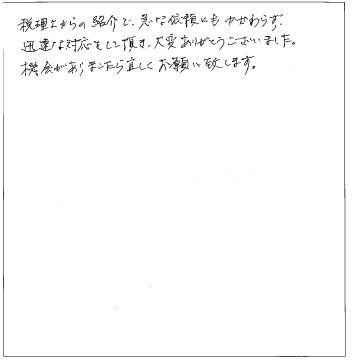 税理士からの紹介で、急な依頼にもかかわらず
迅速な対応をして頂き、大変ありがとうございました。
機会がありましたら宜しくお願い致します。